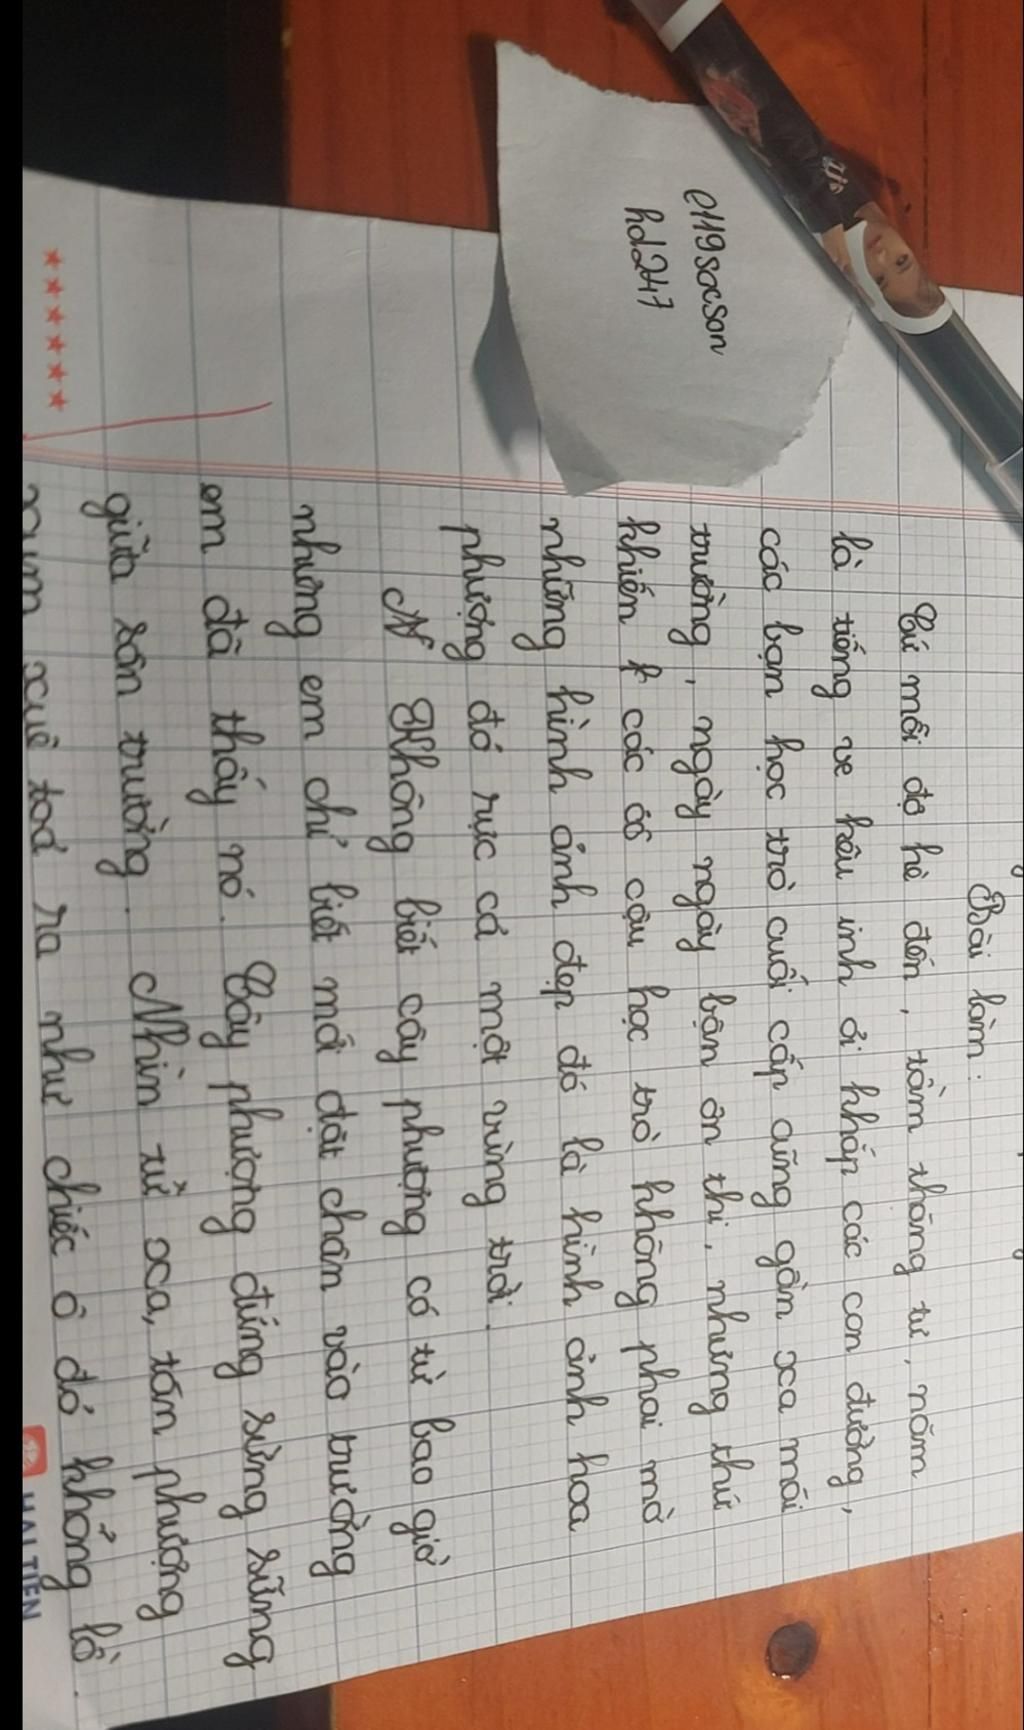 e119socson
hd247
Bài làm:
Cứ mỗi độ hè đến, tầm tháng tư, năm
là tiếng ve kêu inh ỏi khắp các con đường,
các bạn học trò cuối cấp cũng gần xa mái
trường, ngày ngày bận ôn thi, nhưng thứ
khiến các cô cậu học trò không phai mờ
những hình ảnh đẹp đó là hình ảnh hoa
phượng đỏ rực cả một vùng trời.
N Không biết cây phượng có từ bao giờ
nhưng em chỉ biết mới đặt chân vào trường
em đã thấy nó. Cây phượng đứng sừng sững
giữa sân trường. Nhìn từ xa, tán phượng
xum xuê toả ra như chiếc ô đỏ khổng lồ.
HẢI TIẾN